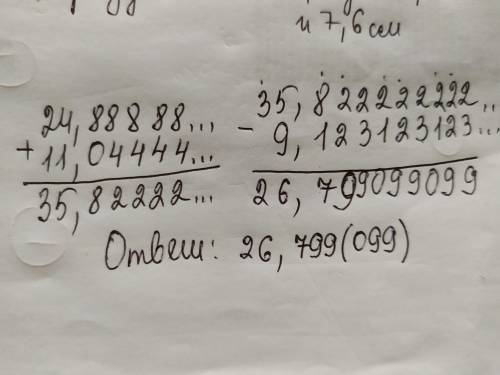 и 7,6 см
24,88888...
+ 11,04444...
35,82222...
35,822222222..
- 9,123123123...
26,799099099
Ответ: 26,799(099)